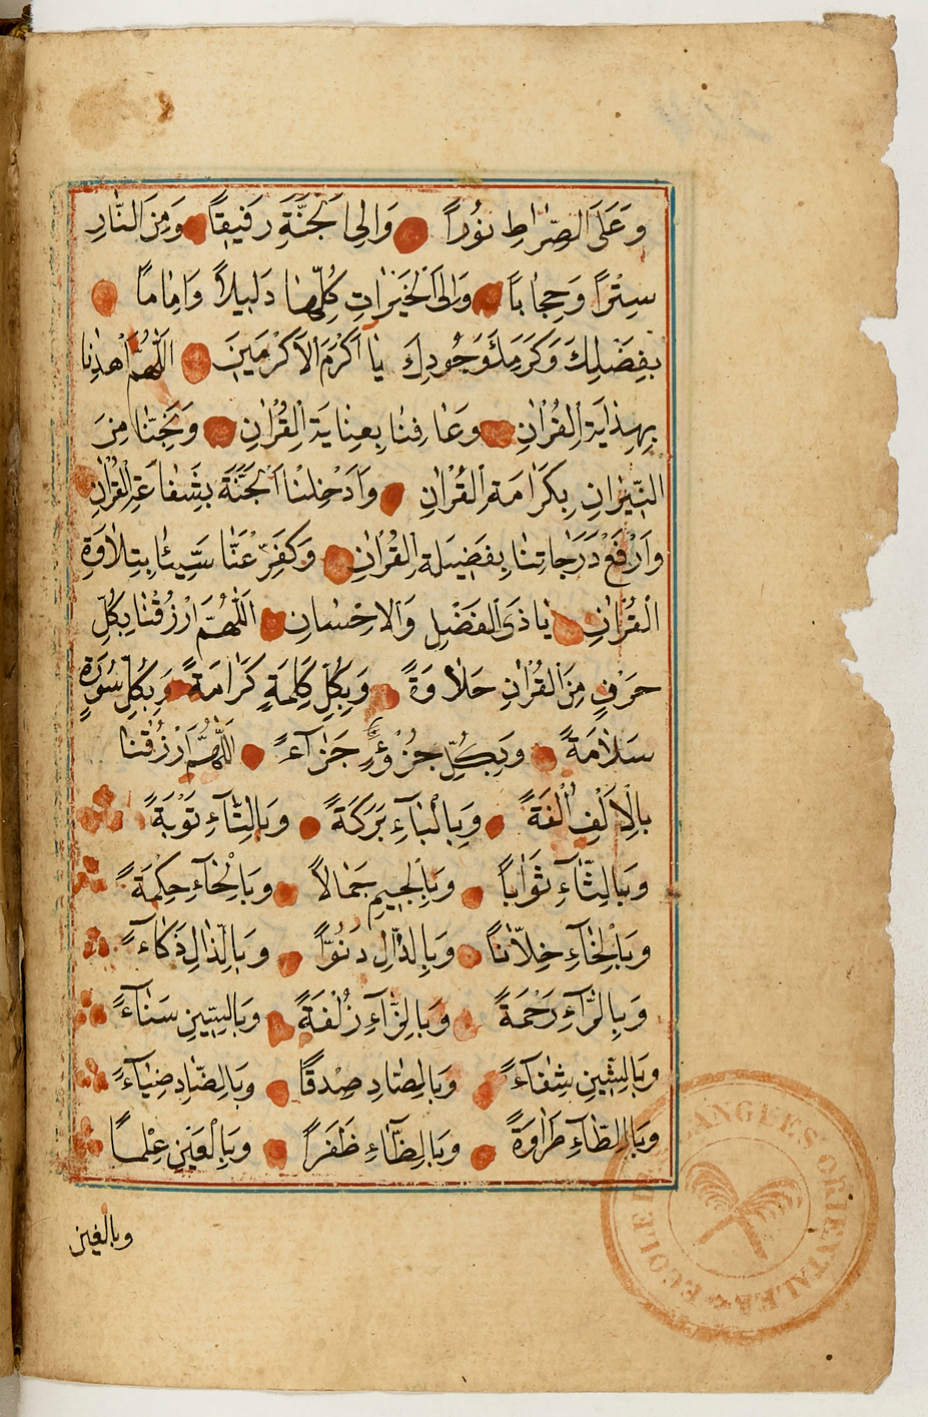 وَعَلَى الصِّرَاطِ نُوُراً وَاِلَى الْجَنَّةِ رَفَيِقاً وَمِنَ النَّارِ
سِتْراً وَحِجَاباً وَاِلَى الْخَيَرْاتِ كُلِّهَا دَلَيِلاً وَاِمَاماً
بِفِضَلِكَ وَكَرَمِكَ وَجُودِكَ يَا اَكْرَمَ الْاَكْرَمَيِنَ اَللّٰهُمَّ اهْدِنَا
بِهِدَايَةِ الْقُرْاٰنِ وَعَافِنَا بِعِنَايَةِ الْقُرْاٰنِ وَنَجِّنَا مِنَ
النّيَرانِ بِكَرَامَةِ الْقُرْاٰنِ وَاَدْخِلْنَا الْجَنَّةَ بِشَفَاعَةِ الْقُرْاٰنِ
وَارْفَعْ دَرَجَاتِنَا بِفَضيَلةِ الْقُرْاٰنِ وَكَفِّرْ عَنَّا سَيِّئَا بِتِلاَوَةِ
الْقُرْاٰنِ يَا ذَى الْفَضْلِ وَالْاِحْسَانِ اَللّٰهُمَّ ارْزُقْنَا بِكُلِّ
حَرْفٍ مِنَ الْقُرْاٰنِ حَلاَوَةً وَبِكُلِّ كَلِمَةٍ كَرَامَةً وَبِكُلِّ سُورَةٍ
سَلاَمَةً وَبِكُلِّ جُزْؤٍ جَزَآءً اَللّٰهُمَّ ارْزُقْنَا
بِالْاَلْفِ اُلْفَةً وَبِالْبَآءِ بَرَكَةً وَبِالتَّآءِ تَوْبَةً
وَبِالثَّآءِ ثَوَاباً وَبِالْجيِمِ جَمَالاً وَبِالْحَآءِ حِكْمَةً
وَبِالْخَآءِ خِلاَّناً وَبِالدَّالِ دَنُوّاً وَبِالذَّالِ ذَكَاءً
وَبِالرَّآءِ رَحْمَةً وَبِالزَّآءِ زُلْفَةً وَبِالسِّيِنِ سَنَآءً
وَبِالشِّيِنِ شِفَآءً وَبِالصَّادِ صِدْقًا وَبِالضَّادِ ضِيَاءً
وَبِالطَّآءِ طَرَاوَةً وَبِالظَّآءِ ظَفَراً وَبِالْعَيْنِ عِلْماً
وبالغين
ECOLE DES LANGUES ORIENTALES